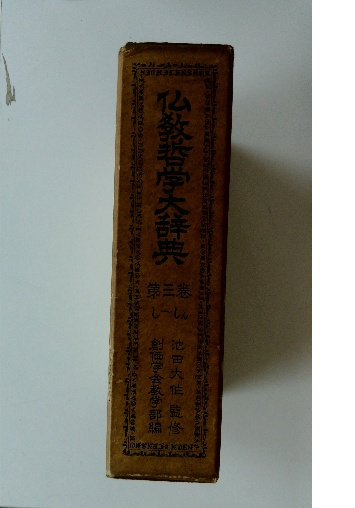 仏教哲学大辞典
第三巻
し～しん
池田大作 監修
創価学会教学部編